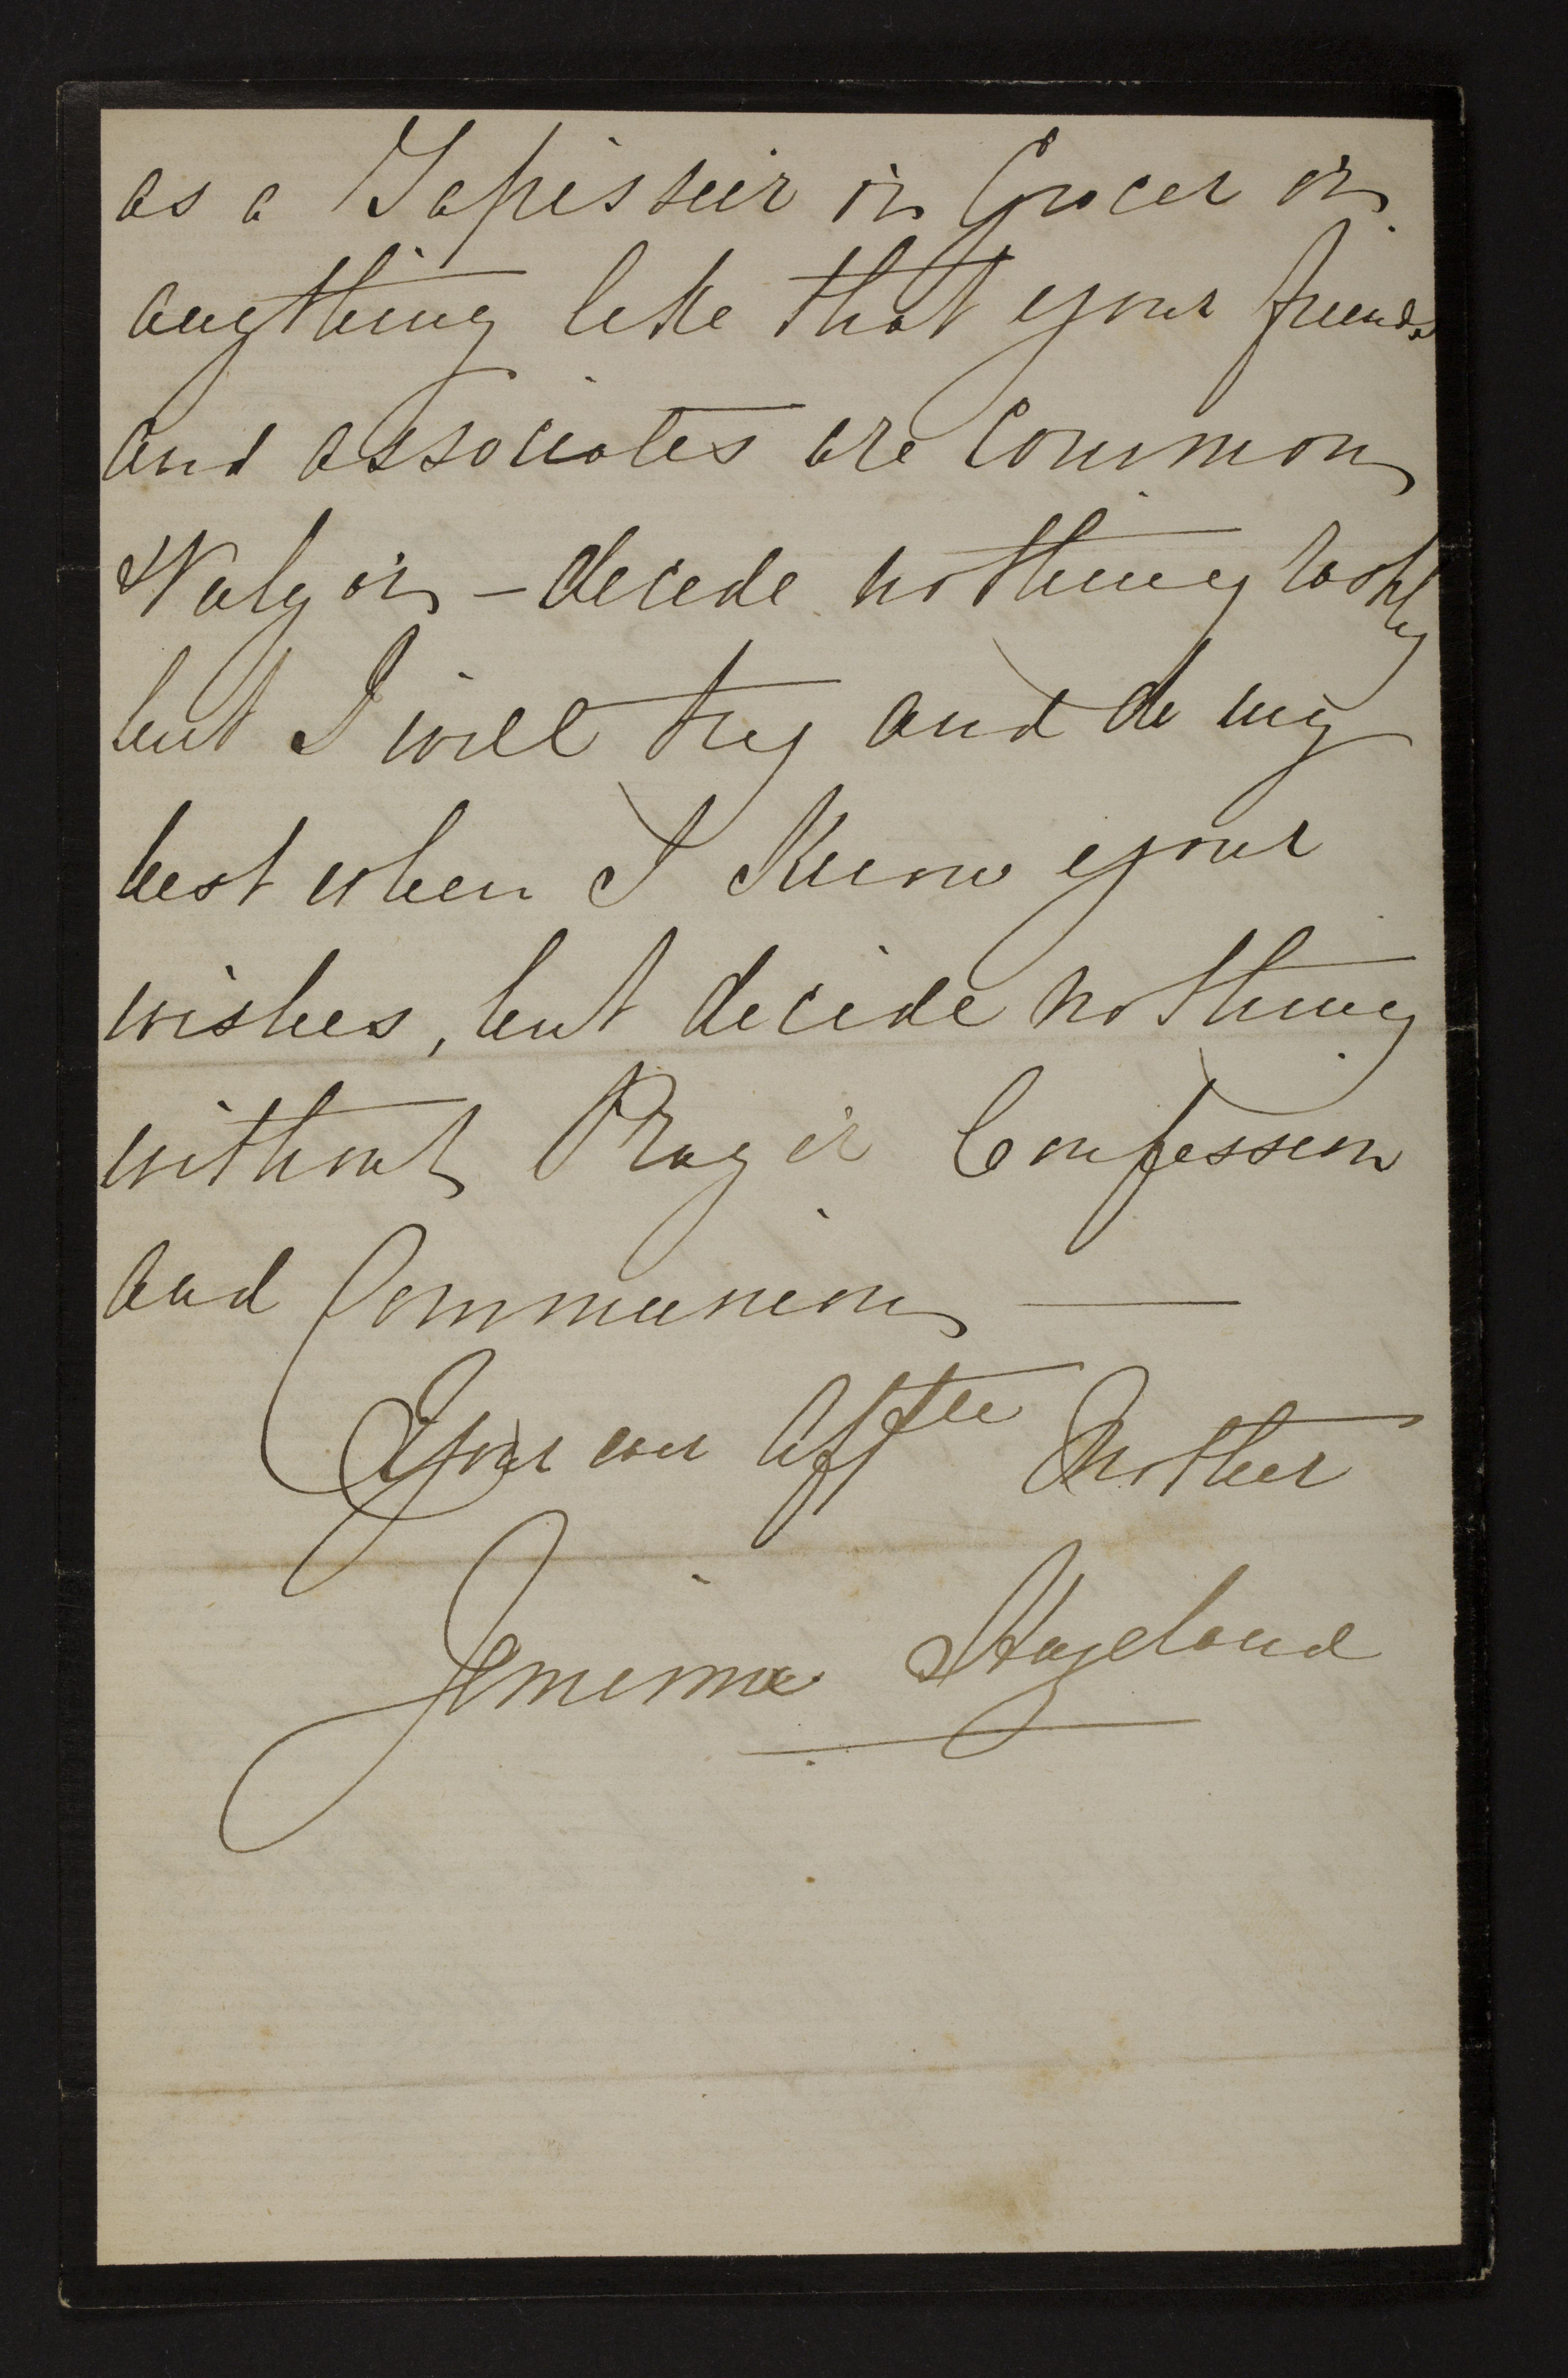 as a Tapissier or Grocer or
anything like that your friends
and associates are Common
& Vulgar - decide nothing rashly
but I will try and do my
best when I Know your
wishes, but decide nothing
without Prayer Confession
and Communion —
Your ever Afftee Mother
Jemima Hazeland